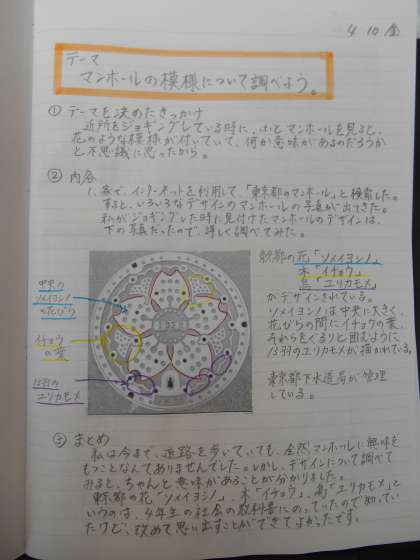 4 10 金
テーマ
マンホールの模様について調べよう。
① テーマを決めたきっかけ
近所をジョギングしている時に、ふとマンホールを見ると、
花のような模様が付いていて、何か意味があるのだろうか
と不思議に思ったから。
② 内容
1. 家で、インターネットを利用して、「東京都のマンホール」と検索した。
すると、いろいろなデザインのマンホールの写真が出てきた。
私がジョギングした時に見付けたマンホールのデザインは、
下の写真だったので、詳しく調べてみた。
中央の
ソメイヨシノ
の花びら
イチョウ
の葉
13羽の
ユリカモメ
東京都の花「ソメイヨシノ」
木「イチョウ」
鳥「ユリカモメ」
がデザインされている。
ソメイヨシノは中央に大きく、
花びらの間にイチョウの葉、
それらをぐるりと囲むように
13羽のユリカモメが描かれている。
東京都下水道局が管理
している。
③ まとめ
私は今まで、道路を歩いていても、全然マンホールに興味を
もつことなんてありませんでした。しかし、デザインについて調べて
みると、ちゃんと意味があることが分かりました。
東京都の花「ソメイヨシノ」、木「イチョウ」、鳥「ユリカモメ」と
いうのは、4年生の社会の教科書にのっていたので知ってい
たけど、改めて思い出すことができてよかったです。